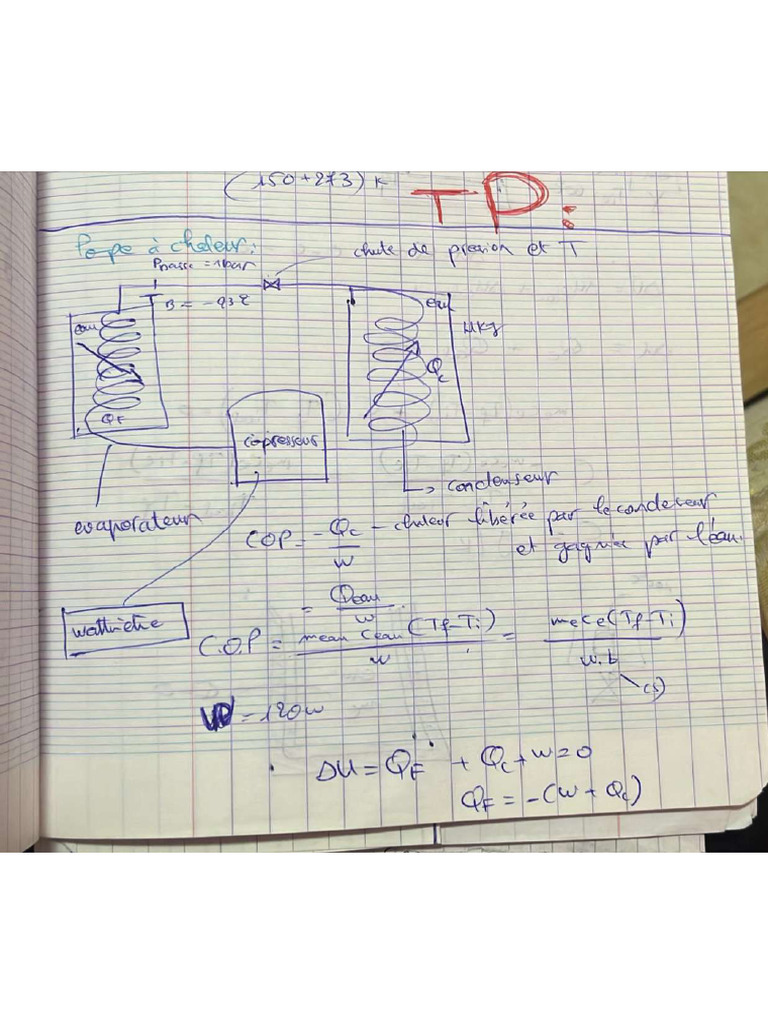 (150+273) K
TP:
Pompe à chaleur:
chute de pression et T
Pbasse = 1bar
eau
eau
4Kg
Qc
QF
copresseur
condenseur
evaporateur
COP = -Qc/W - chaleur libérée par le condenseur
et gagnée par l'éau.
= Qeau/W
wattmètre
C.O.P = meau Ceau (Tf-Ti)/W = meCe(Tf-Ti)/W.t
(s)
= 120W
ΔU = QF + Qc + W = 0
QF = -(W + Qc)